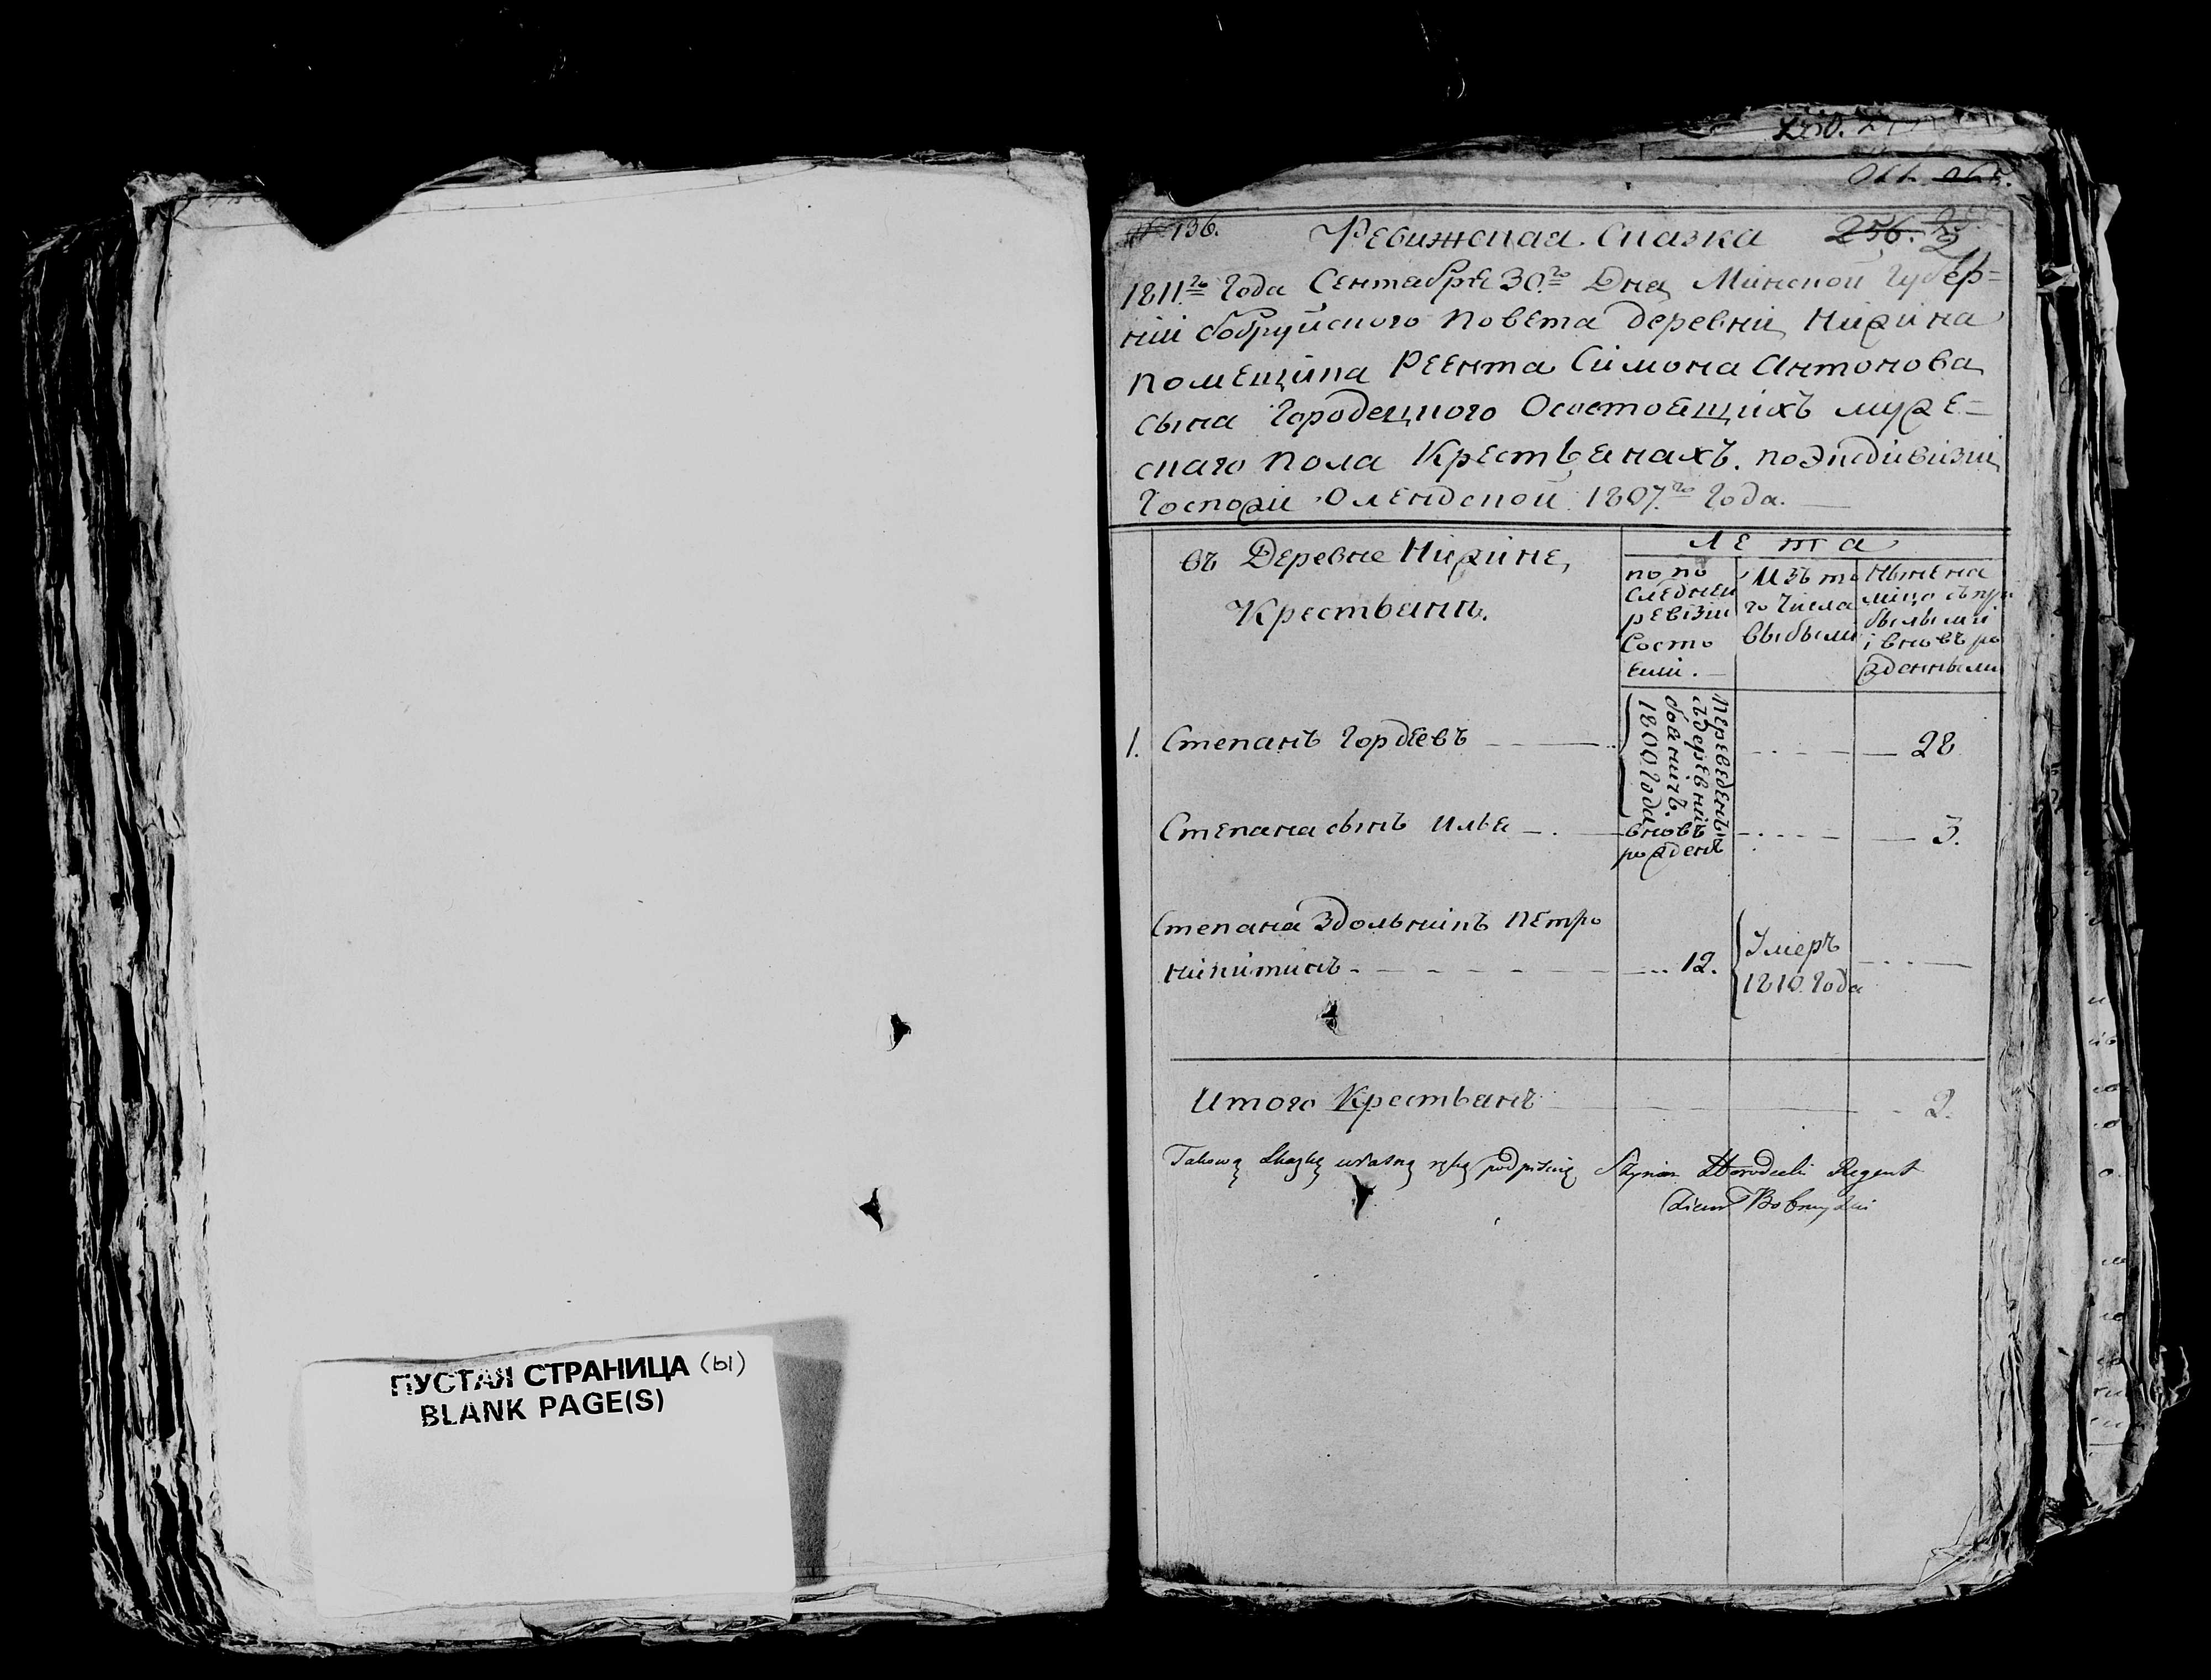 ПУСТАЯ СТРАНИЦА (ы)
BLANK PAGE(S)
136.
Ревижская Сказка 256.
1811го Года Сентября 30го Дня Минской Губер=
нии бобруйского повета деревни Нижина
помещика Реента Симона Антонова
сына Городецкого Осостоящихъ муже=
скаго пола Крестьянахъ. по Эксдивизии
Госпожи Олендской 1807го Года.
въ Деревне Нижине,
Крестьянъ.
Лета
по по
следнеи
ревизии
Состо
яли.
Изъ то
го Числа
выбыли
Ныне на
лицо съ при
былыми
і вновь ро
жденными
1. Степанъ Гордеевъ
Переведенъ
съ деревни
1800 Года
28
Степана сынъ Илья
вновь
рожденъ
3.
Степана Здольникъ Петро
никитинъ
12.
Умеръ
1810 Года
Итого Крестьянъ 2.
Takową Skazkę własną ręką podpisuię Szymon Horodecki Regent
Bobruyski